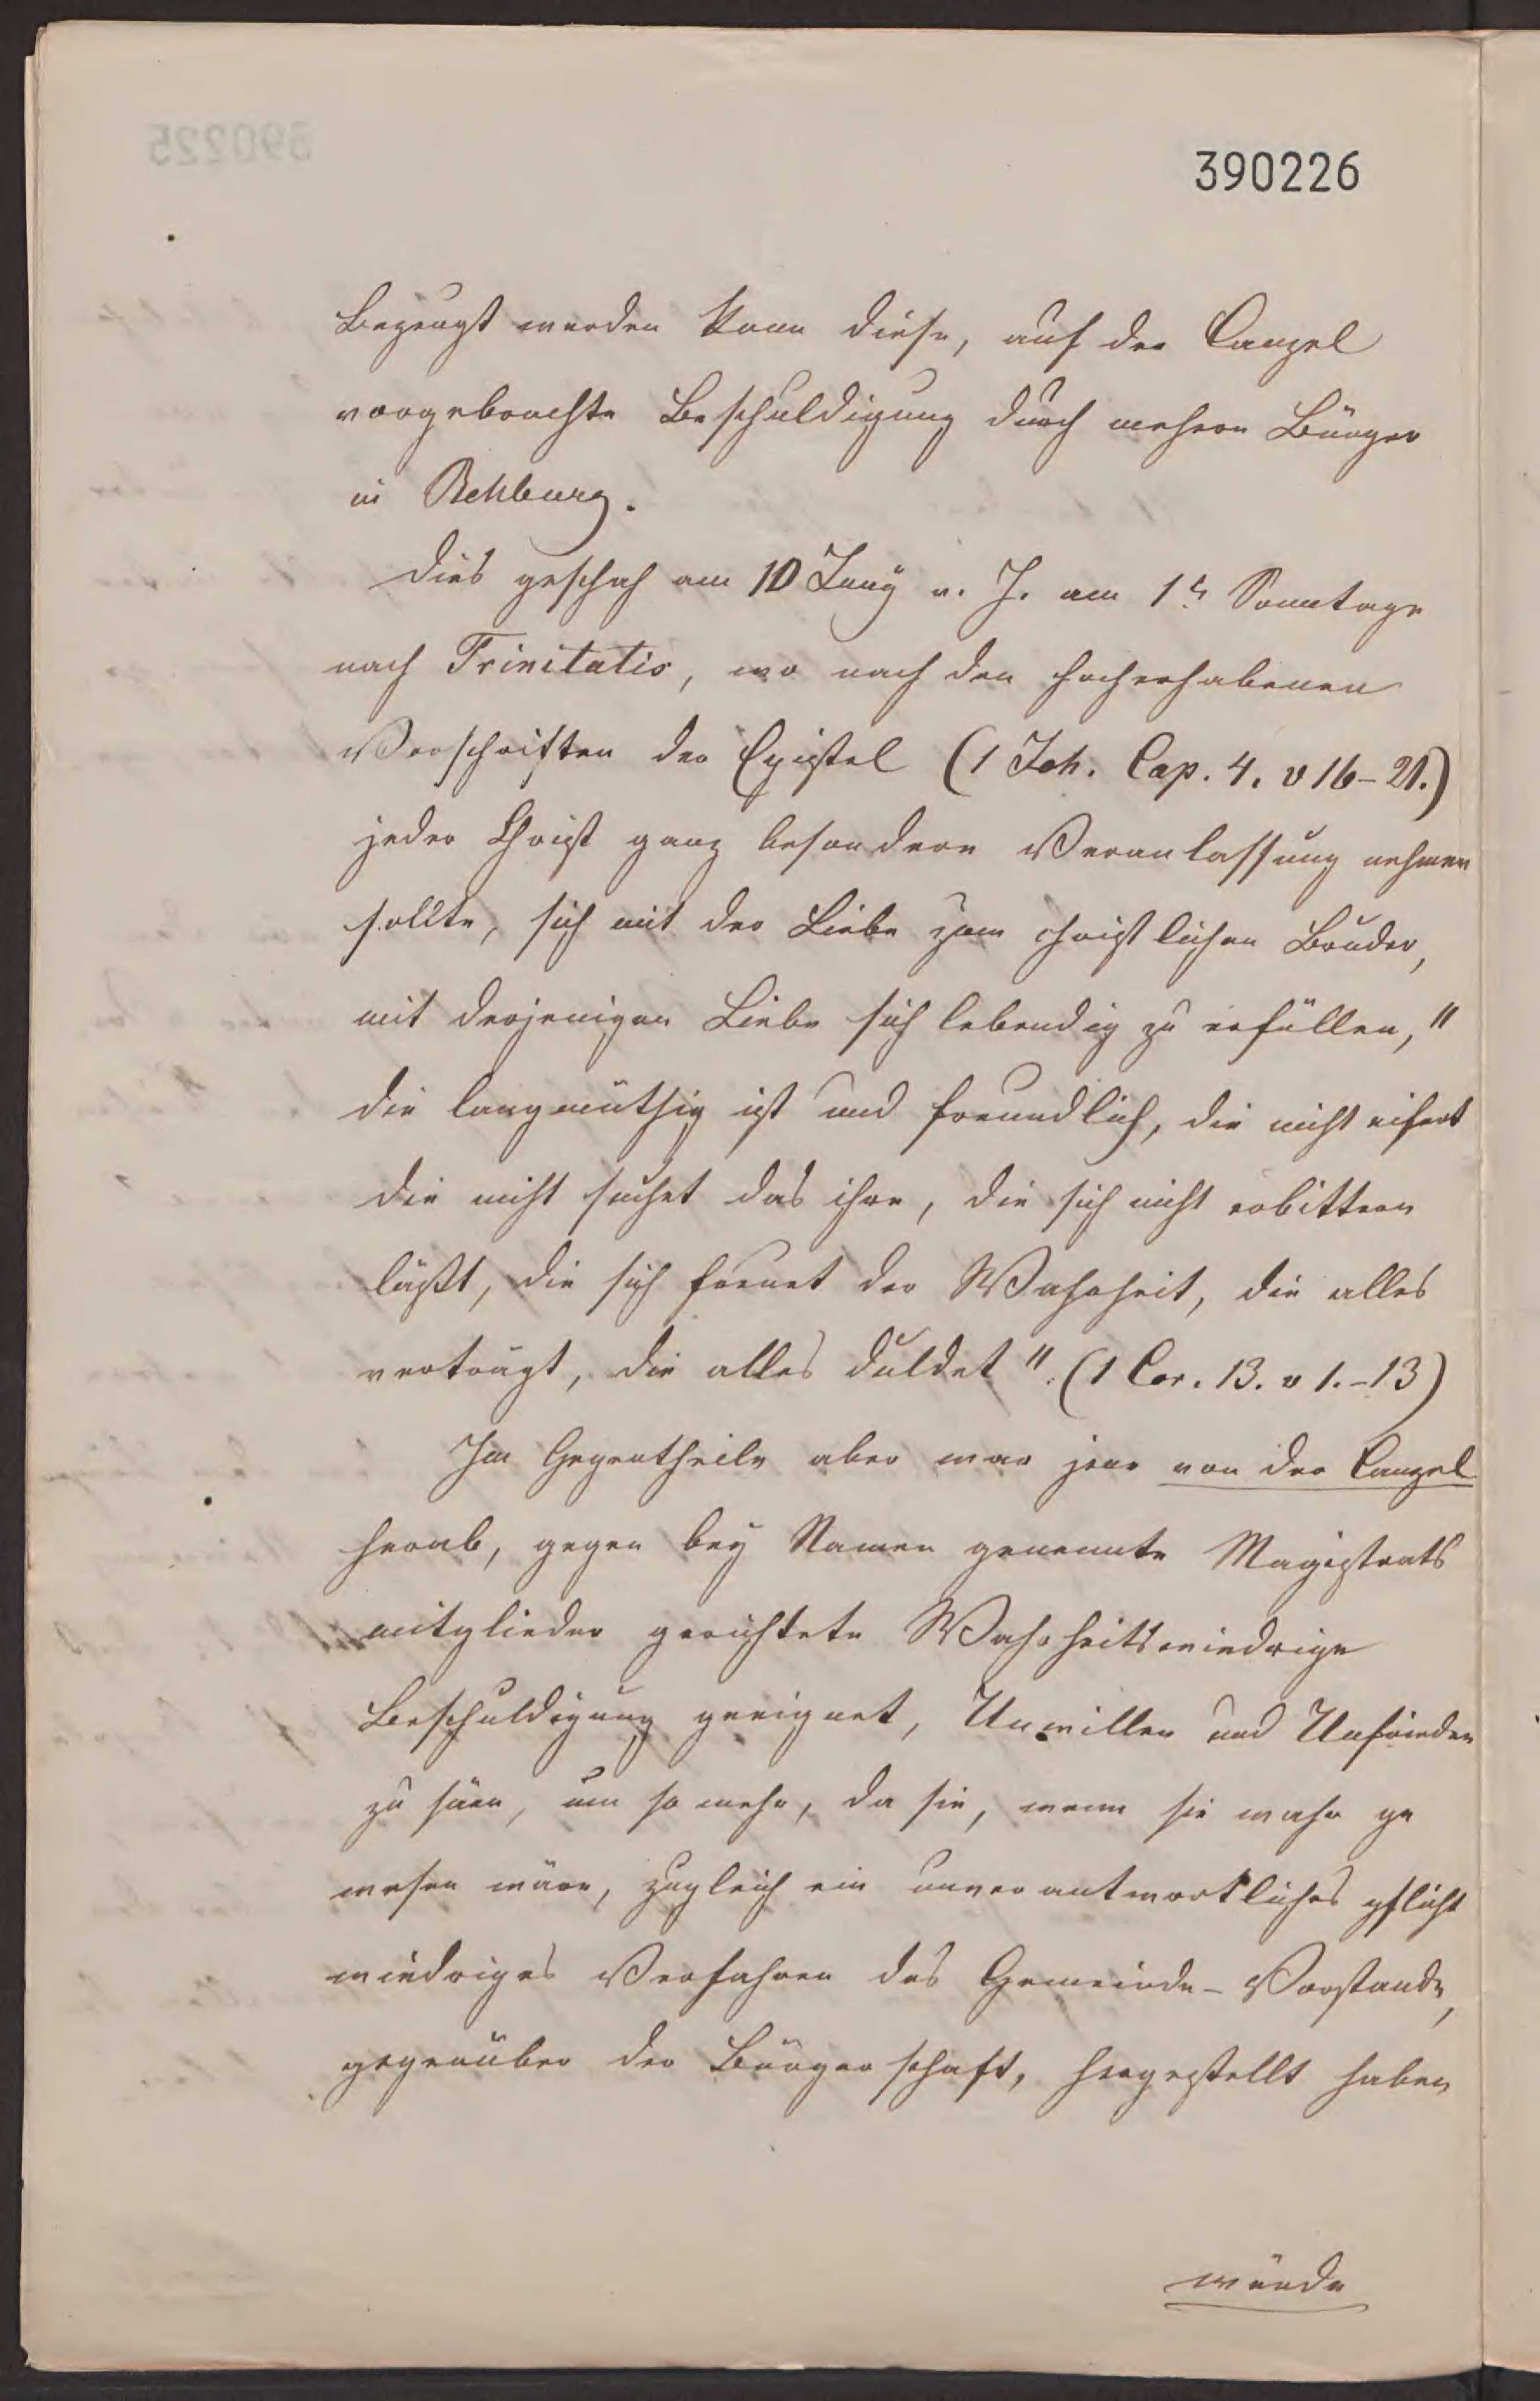 390226
Bezeugt werden kann diese, auf der Canzel
vorgebrachte Beschuldigung durch mehere Bürger
in Rehburg.
Dies geschah am 10 Juny v. J. am 1t Sonntage
nach Trinitatis, wo nach den hocherhabenen
Vorschriften der Epistel (1 Joh. Cap. 4. v 16-21.)
jeder Christ ganz besondere Veranlassung nehmen
sollte, sich mit der Liebe zum christlichen Bruder,
mit derjenigen Liebe sich lebendig zu erfüllen, "
die langmüthig ist und freundlich, die nicht eifert
die nicht suchet das ihre, die sich nicht erbittern
läßt, die sich freuet der Wahrheit, die alles
verträgt, die alles duldet". (1 Cor. 13. v 1.-13)
Im Gegentheile aber war jene von der Canzel
herab, gegen bey Namen genannte Magistrats
mitglieder gerichtete Wahrheitswiedrige
Beschuldigung geeignet, Unwillen und Unfrieden
zu säen, um so mehr, da sie, wenn sie wahr ge
wesen wäre, zugleich ein unverantwortliches pflicht
wiedriges Verfahren des Gemeinde-Vorstande,
gegenüber der Bürgerschaft, hergestellt haben
würde